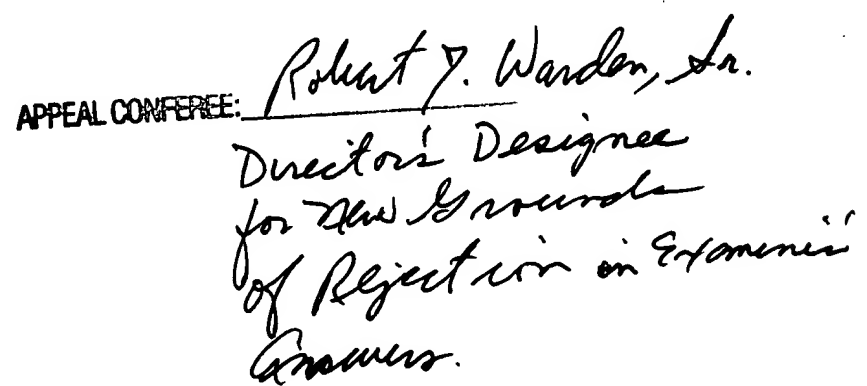 APPEAL CONFEREE: Robert Y. Warden, Sr.
Director's Designee
for New Grounds
of Rejection in Examiners'
Answers.